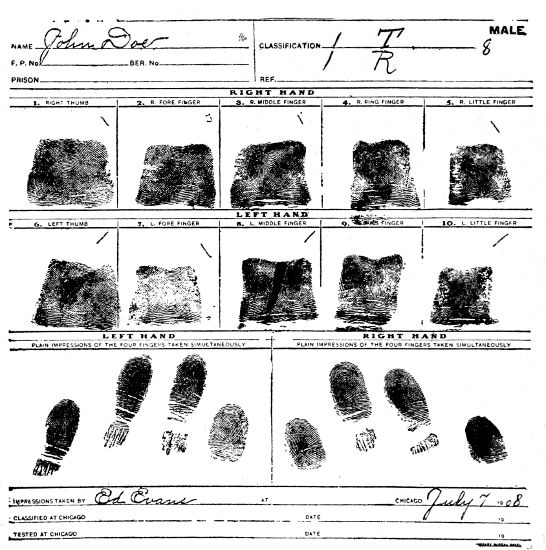 MALE
NAME John Doe
CLASSIFICATION 1 T 8
1 R
F. P. No. BER. No.
PRISON REF.
RIGHT HAND
1. RIGHT THUMB 2. R. FORE FINGER 3. R. MIDDLE FINGER 4. R. RING FINGER 5. R. LITTLE FINGER
LEFT HAND
6. LEFT THUMB 7. L. FORE FINGER 8. L. MIDDLE FINGER 9. FINGER 10. L. LITTLE FINGER
LEFT HAND RIGHT HAND
PLAIN IMPRESSIONS OF THE FOUR FINGERS TAKEN SIMULTANEOUSLY PLAIN IMPRESSIONS OF THE FOUR FINGERS TAKEN SIMULTANEOUSLY
IMPRESSIONS TAKEN BY Ed Evans AT CHICAGO July 7 1908
CLASSIFIED AT CHICAGO DATE 19
TESTED AT CHICAGO DATE 19